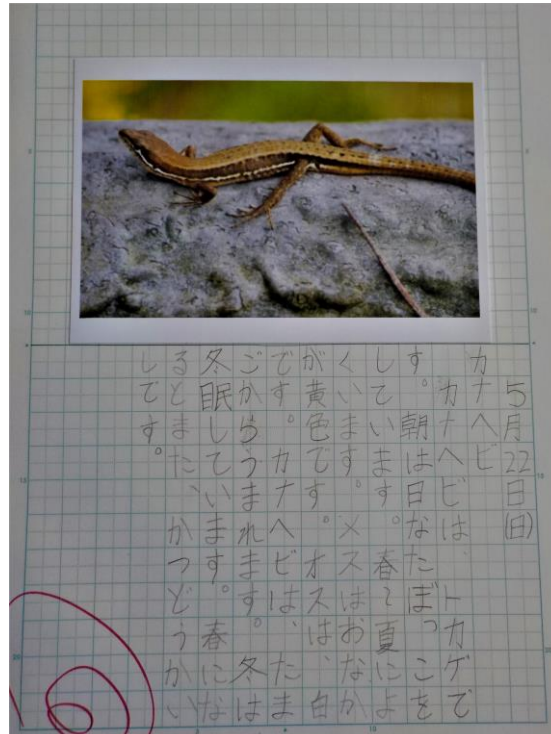 5月22日(日)
カナヘビ
カナヘビは、トカゲで
す。朝は日なたぼっこを
しています。春〜夏によ
くいます。メスはおなか
が黄色です。オスは、白
です。カナヘビは、たま
ごからうまれます。冬は
冬眠しています。春にな
るとまた、かつどうかい
しです。